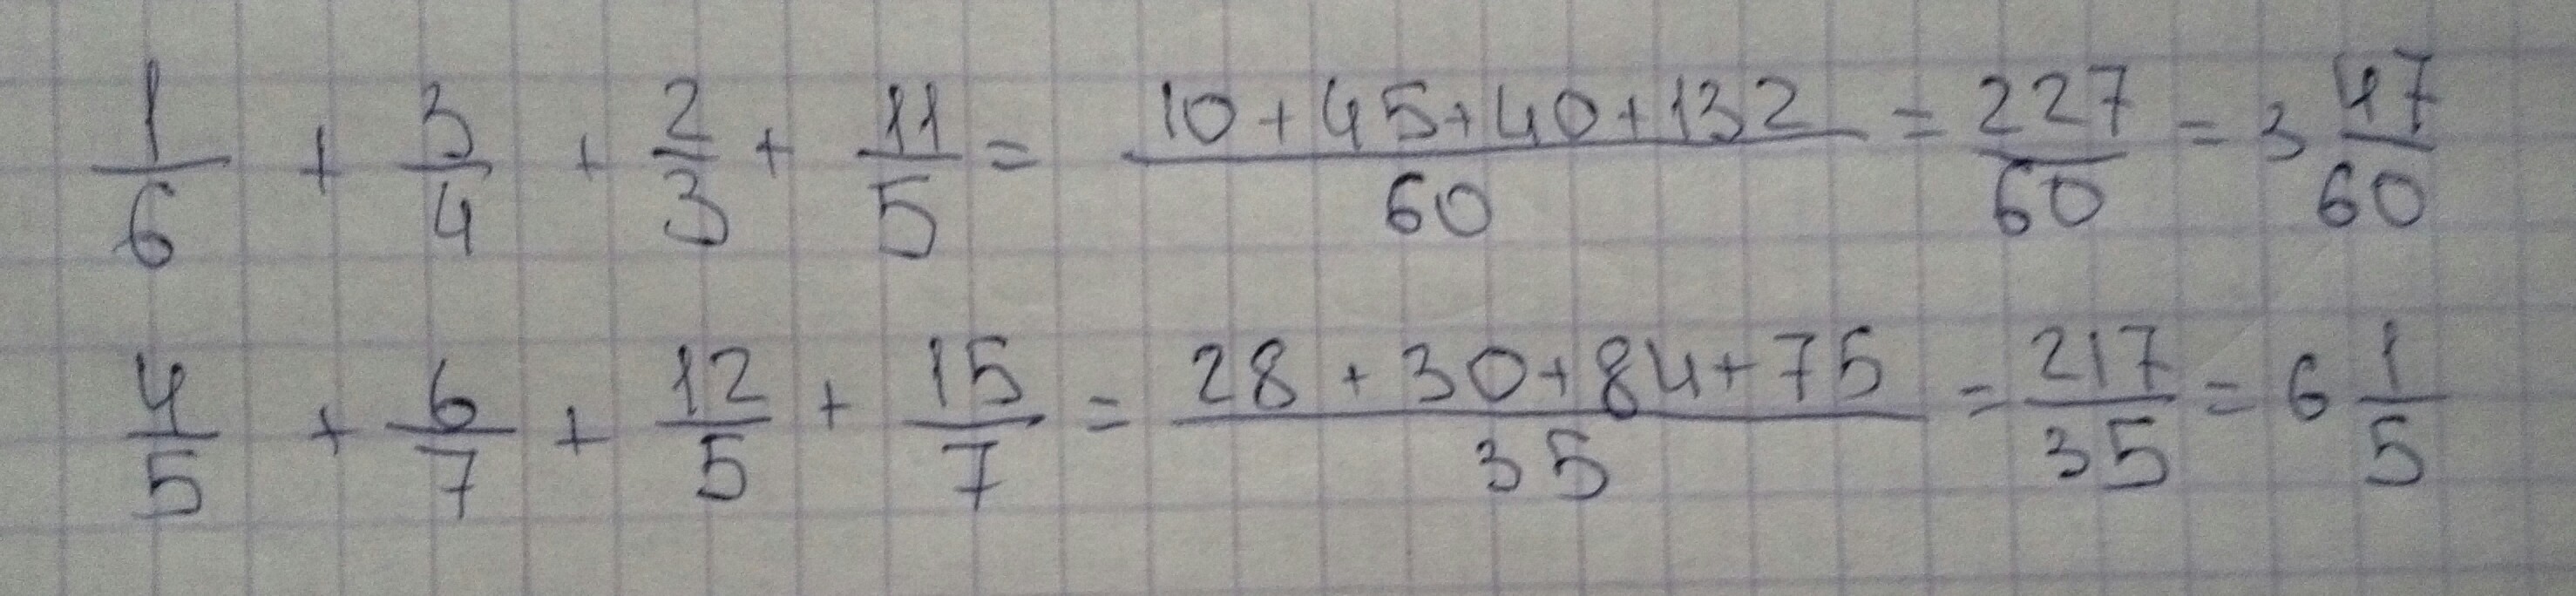 1/6 + 3/4 + 2/3 + 11/5 = (10+45+40+132)/60 = 227/60 = 3 47/60
4/5 + 6/7 + 12/5 + 15/7 = (28+30+84+75)/35 = 217/35 = 6 1/5